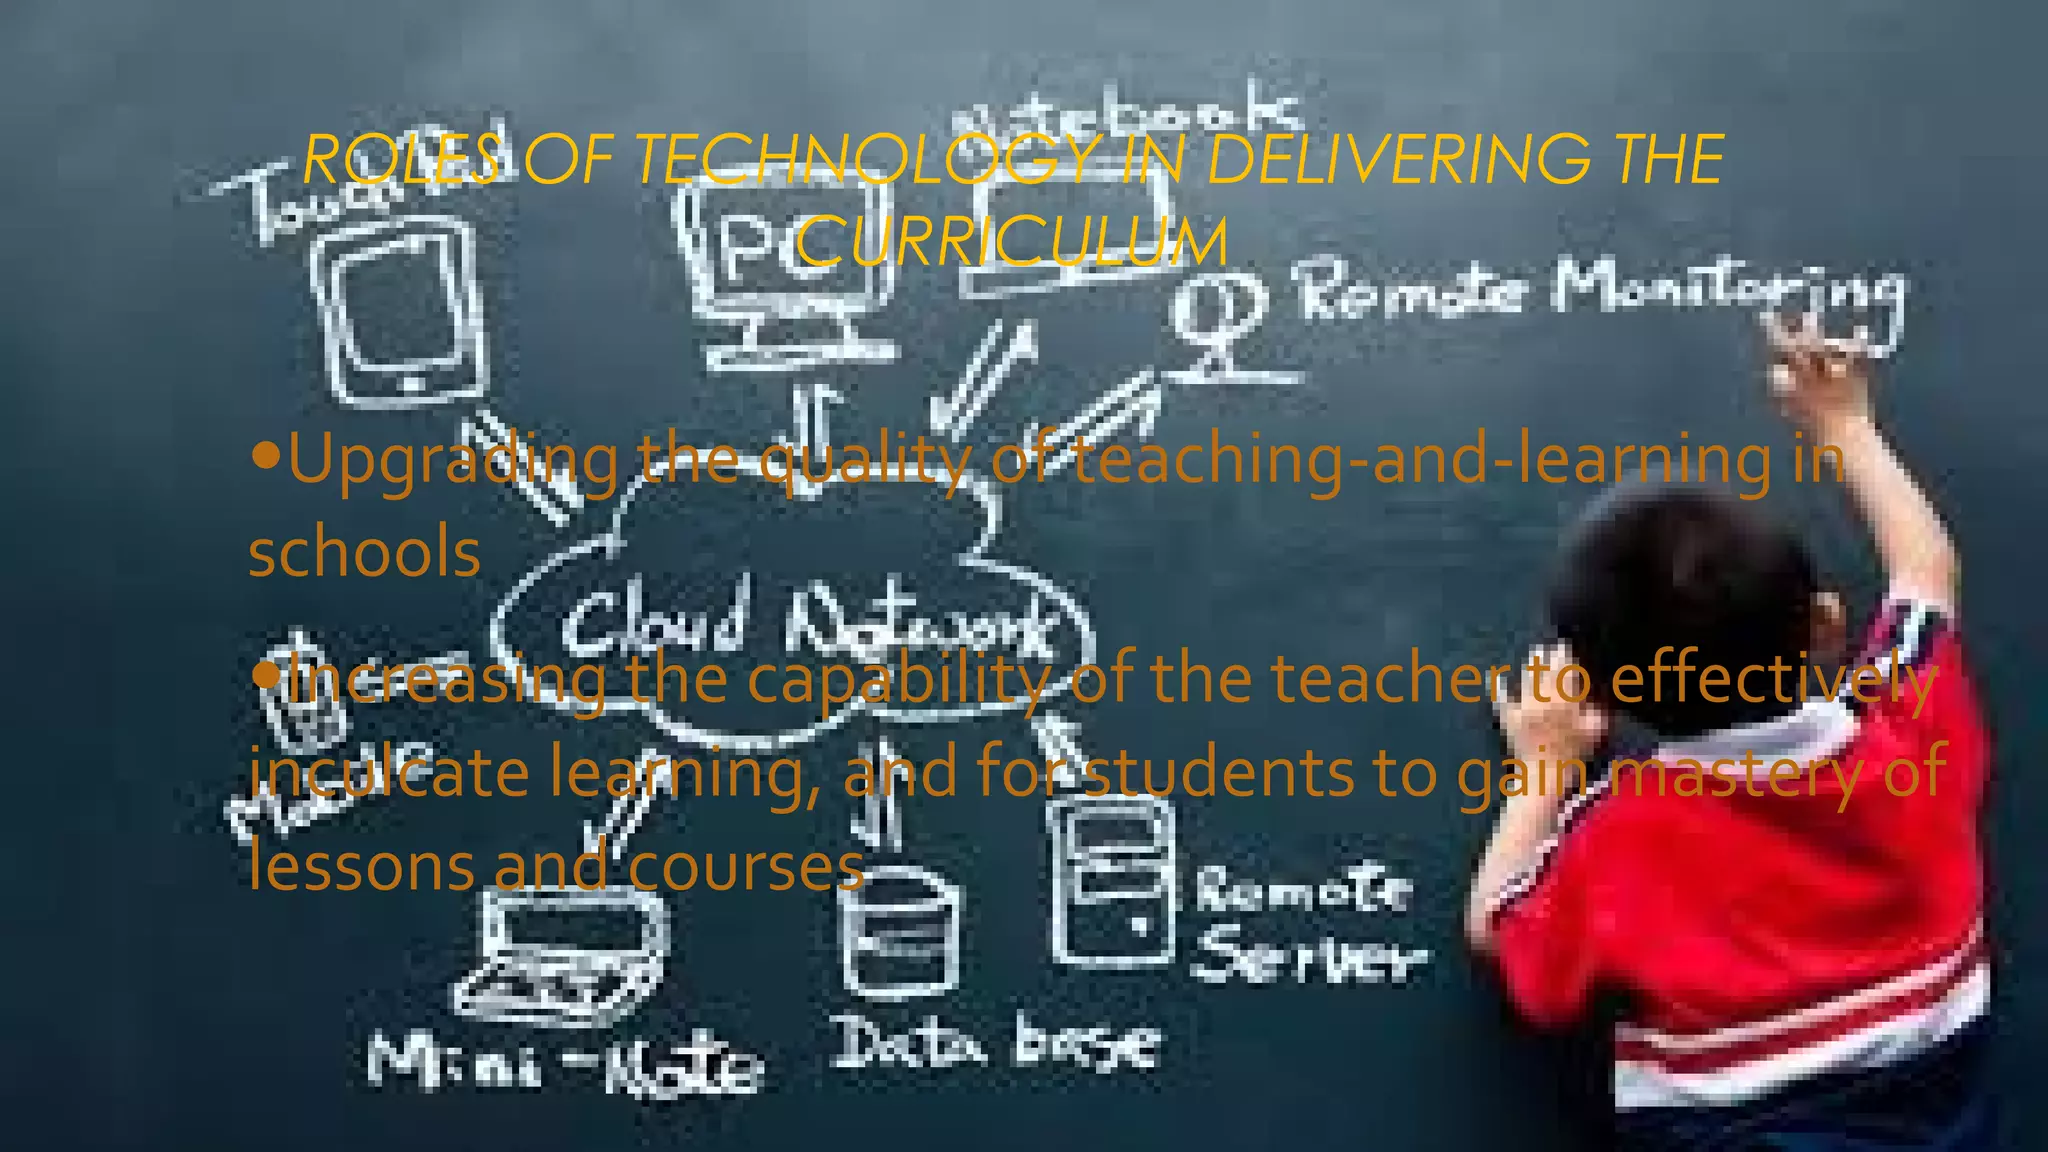 ROLES OF TECHNOLOGY IN DELIVERING THE
CURRICULUM
•Upgrading the quality of teaching-and-learning in
schools
•Increasing the capability of the teacher to effectively
inculcate learning, and for students to gain mastery of
lessons and courses
Notebook
PC
Remote Monitoring
Cloud Network
Remote
Server
Mini-Note
Data base